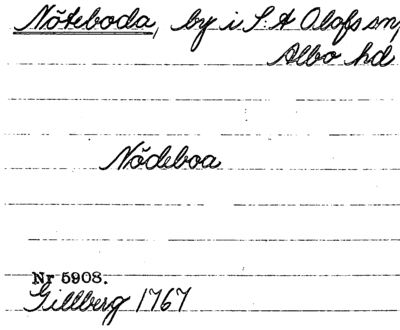 Nöteboda, by i S:t Olofs sn,
Albo hd
Nödeboa
Nr 5908.
Gillberg 1767